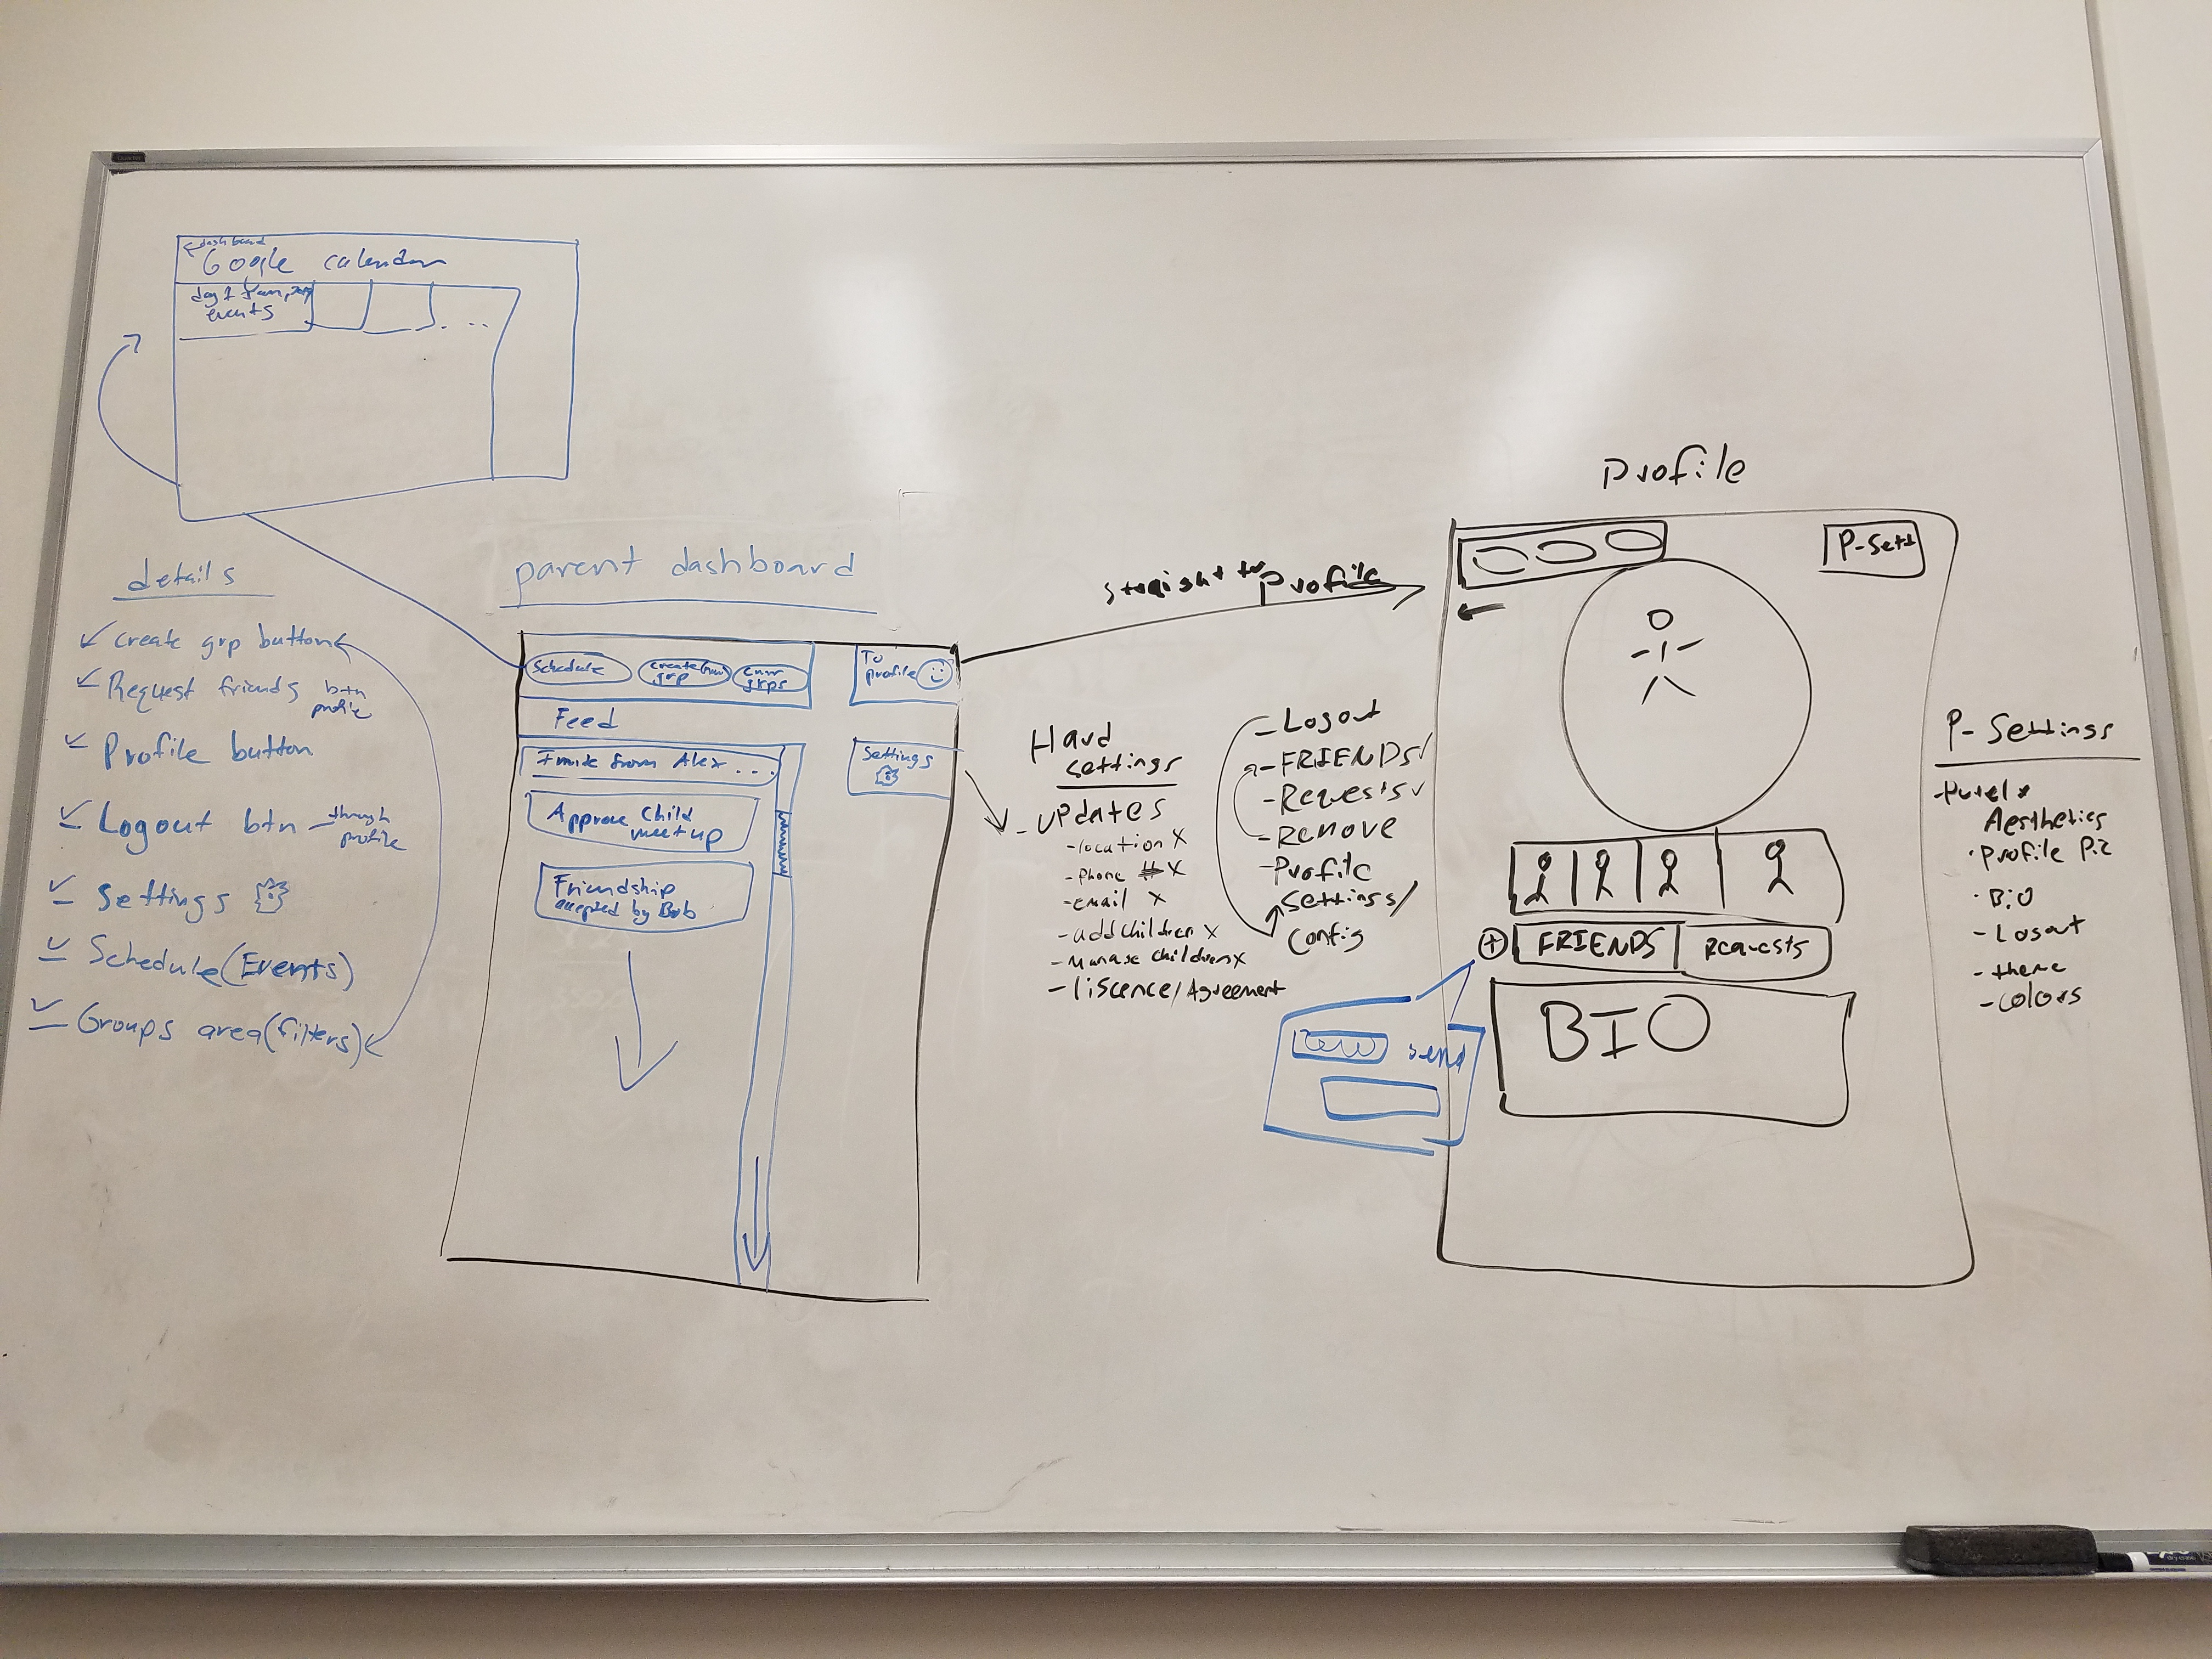 dashboard
Google calendar
day 1
events
details
create grp button
Request friends btn
profile
Profile button
Logout btn - through
profile
settings
Schedule (Events)
Groups area (filters)
parent dashboard
schedule
create (new)
grp
grps
To
profile
Feed
Invite from Alex ...
Approve Child
meetup
Friendship
accepted by Bob
settings
straight to Profile
Hard
settings
- updates
- location X
- phone # X
- email X
- add children X
- Manage children X
- liscence/Agreement
- Logout
- FRIENDS ✓
- Requests ✓
- Remove
- Profile
settings/
config
Profile
P-Sett
FRIENDS
Requests
BIO
send
P-Settings
Aesthetics
· Profile Pic
· Bio
- Logout
- theme
- colors